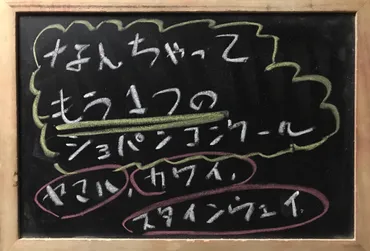 なんちゃって
もう1つの
ショパンコンクール
ヤマハ、カワイ、
スタインウェイ